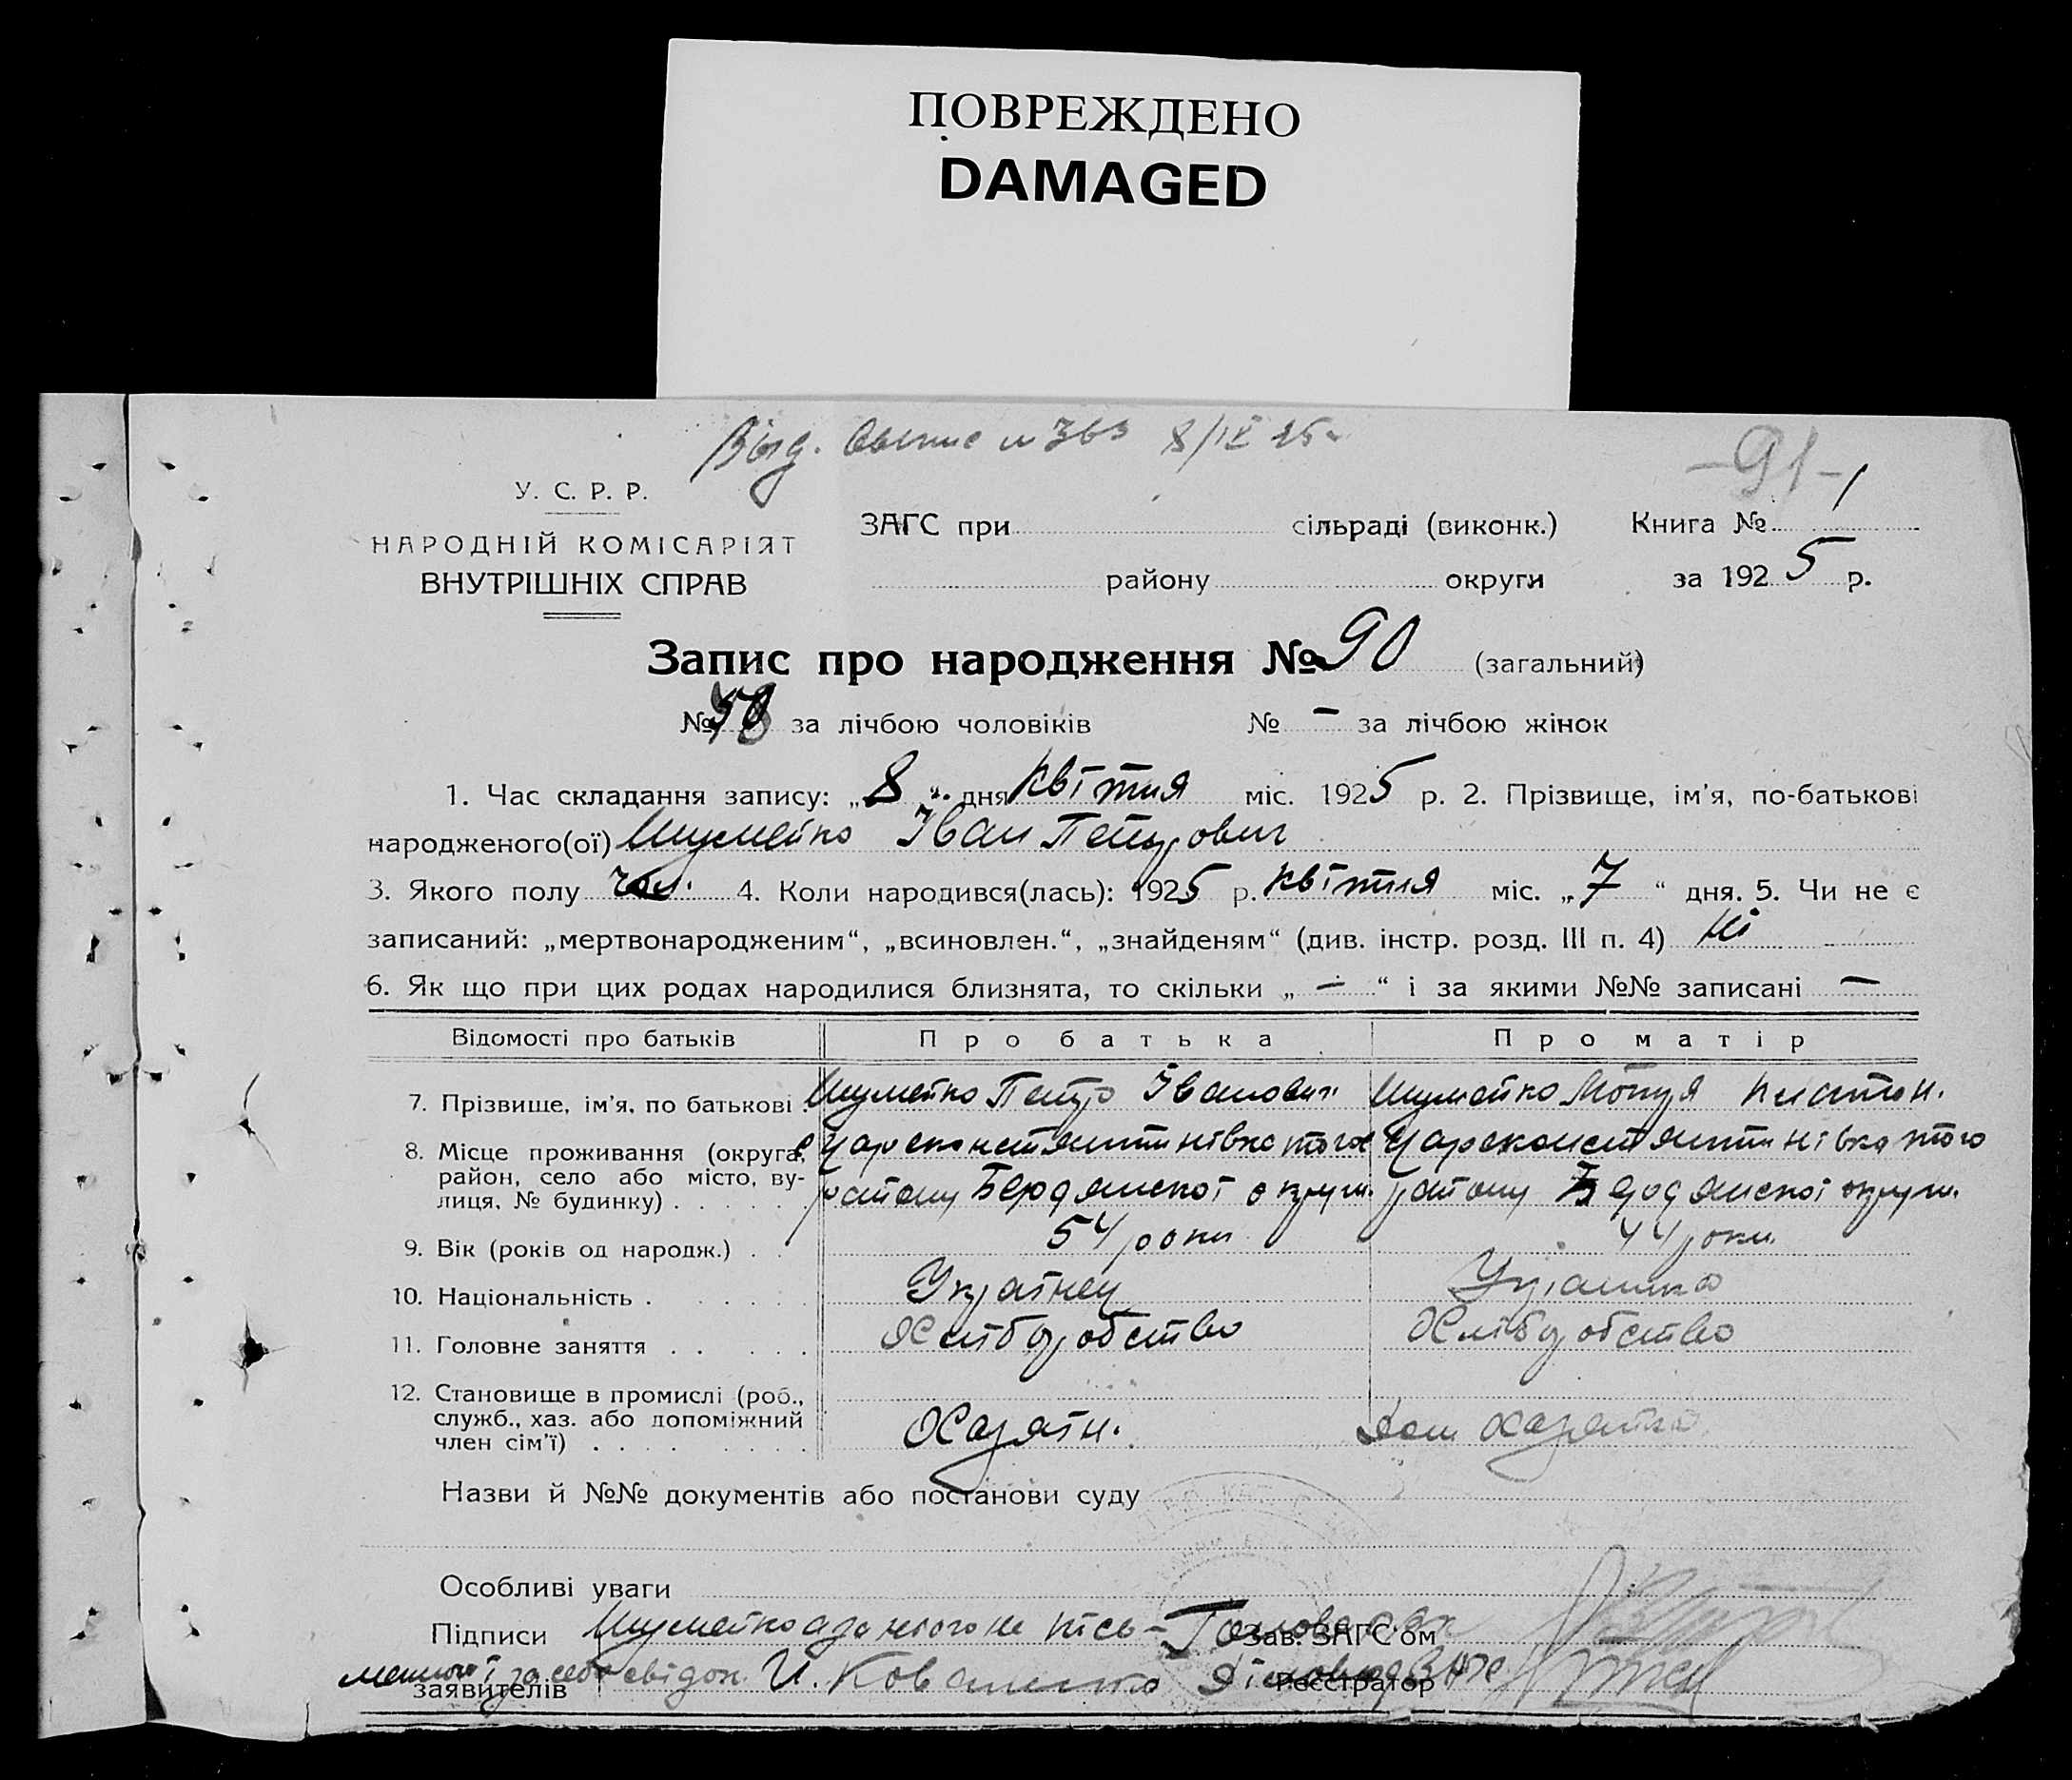 ПОВРЕЖДЕНО
DAMAGED
-91-
У. С. Р. Р.
НАРОДНІЙ КОМІСАРІЯТ
ВНУТРІШНІХ СПРАВ
ЗАГС при сільраді (виконк.) Книга № 1
району округи за 1925 р.
Запис про народження № 90 (загальний)
№ за лічбою чоловіків № — за лічбою жінок
1. Час складання запису: „8“ дня квітня міс. 1925 р. 2. Прізвище, ім'я, по-батькові
народженого(ої) Шумейко Іван Петрович
3. Якого полу чол. 4. Коли народився(лась): 1925 р. квітня міс. „7“ дня. 5. Чи не є
записаний: „мертвонародженим“, „всиновлен.“, „знайденям“ (див. інстр. розд. III п. 4) ні
6. Як що при цих родах народилися близнята, то скільки „—“ і за якими №№ записані —
Відомості про батьків Про батька Про матір
7. Прізвище, ім'я, по батькові . Шумейко Петро Іванович Шумейко
8. Місце проживання (округа, район, село або місто, вулиця, № будинку) . . . . . . с Цареконстянтинівка того району Бердянської округи. с Цареконстянтинівка того району Бердянської округи.
9. Вік (років од народж.) . . 54 роки 44 роки
10. Національність . . . . . . Українец Українка
11. Головне заняття . . . . . Хліборобство Хліборобство
12. Становище в промислі (роб., служб., хаз. або допоміжний член сім'ї) . . . . . . . . Хазяїн. Хазяйка
Назви й №№ документів або постанови суду
Особливі уваги
Підписи Шумейко а за нього не пісь- Зав. ЗАГС'ом
заявителів менного і за себе свідок И. Коваленко Реєстратор